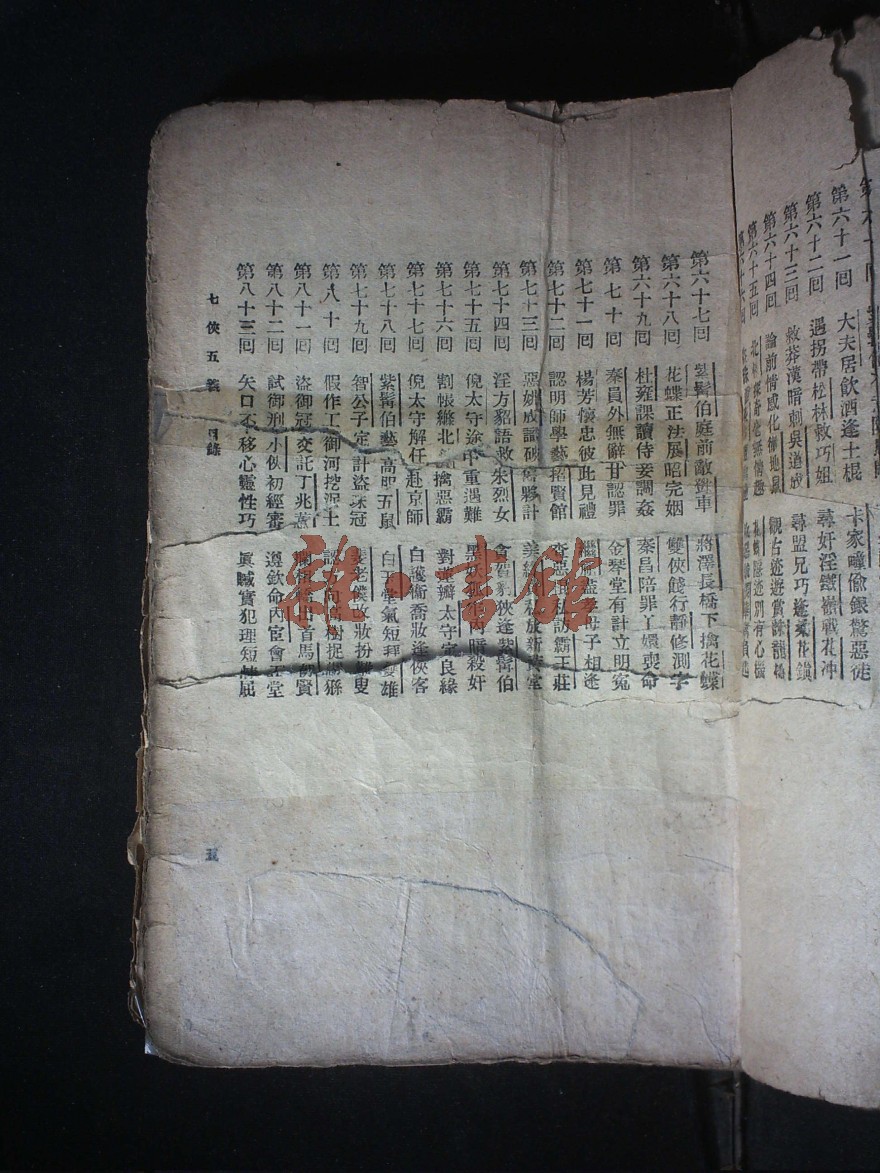 第六十一回 大夫居飲酒逢土棍 卞家疃偷銀驚惡徒
第六十二回 遇拐帶松林救巧姐 尋奸淫鐵嶺戰花冲
第六十三回 救莽漢暗刺吳道成 尋盟兄巧逢柔花鎖
第六十四回 論前情感化徹地鼠 觀古迹遊賞誅龍橋
第六十五回
第六十七回 髯伯庭前敵鄧車 蔣澤長橋下擒花蝶
第六十八回 花蝶正法展昭完姻 雙俠餞行靜修測字
第六十九回 杜雍課讀侍妾調姦 秦昌陪罪丫嬛喪命
第七十回 秦員外無辭甘認罪 金琴堂有計立明冤
第七十一回 楊芳懷忠彼此見禮 繼母子相逢
第七十二回 認明師學藝招賢館 私訪霸王莊
第七十三回 惡姚成識破舊夥計 美絳放新
第七十四回 淫方貂誤救朱烈女 貪賀豹狹逢紫髯伯
第七十五回 倪太守途中重遇難 黑暗殺奸
第七十六回 割帳縧北擒惡霸 對瓣太守定良緣
第七十七回 倪太守解任赴京師 白護衛喬妝逢俠客
第七十八回 紫髯伯藝高服五鼠 白玉堂氣短拜雙雄
第七十九回 智公子定計盜珠冠 裴老僕改妝扮難叟
第八十回 假作工御河挖泥土 認方向高樹捉猴猻
第八十一回 盜御冠交託丁兆蕙 首馬朝賢
第八十二回 試御刑小俠初經審 遵欽命內宦會五堂
第八十三回 矢口不移心靈性巧 眞贓實犯理短情屈
七俠五義 目錄
五
雜·書館